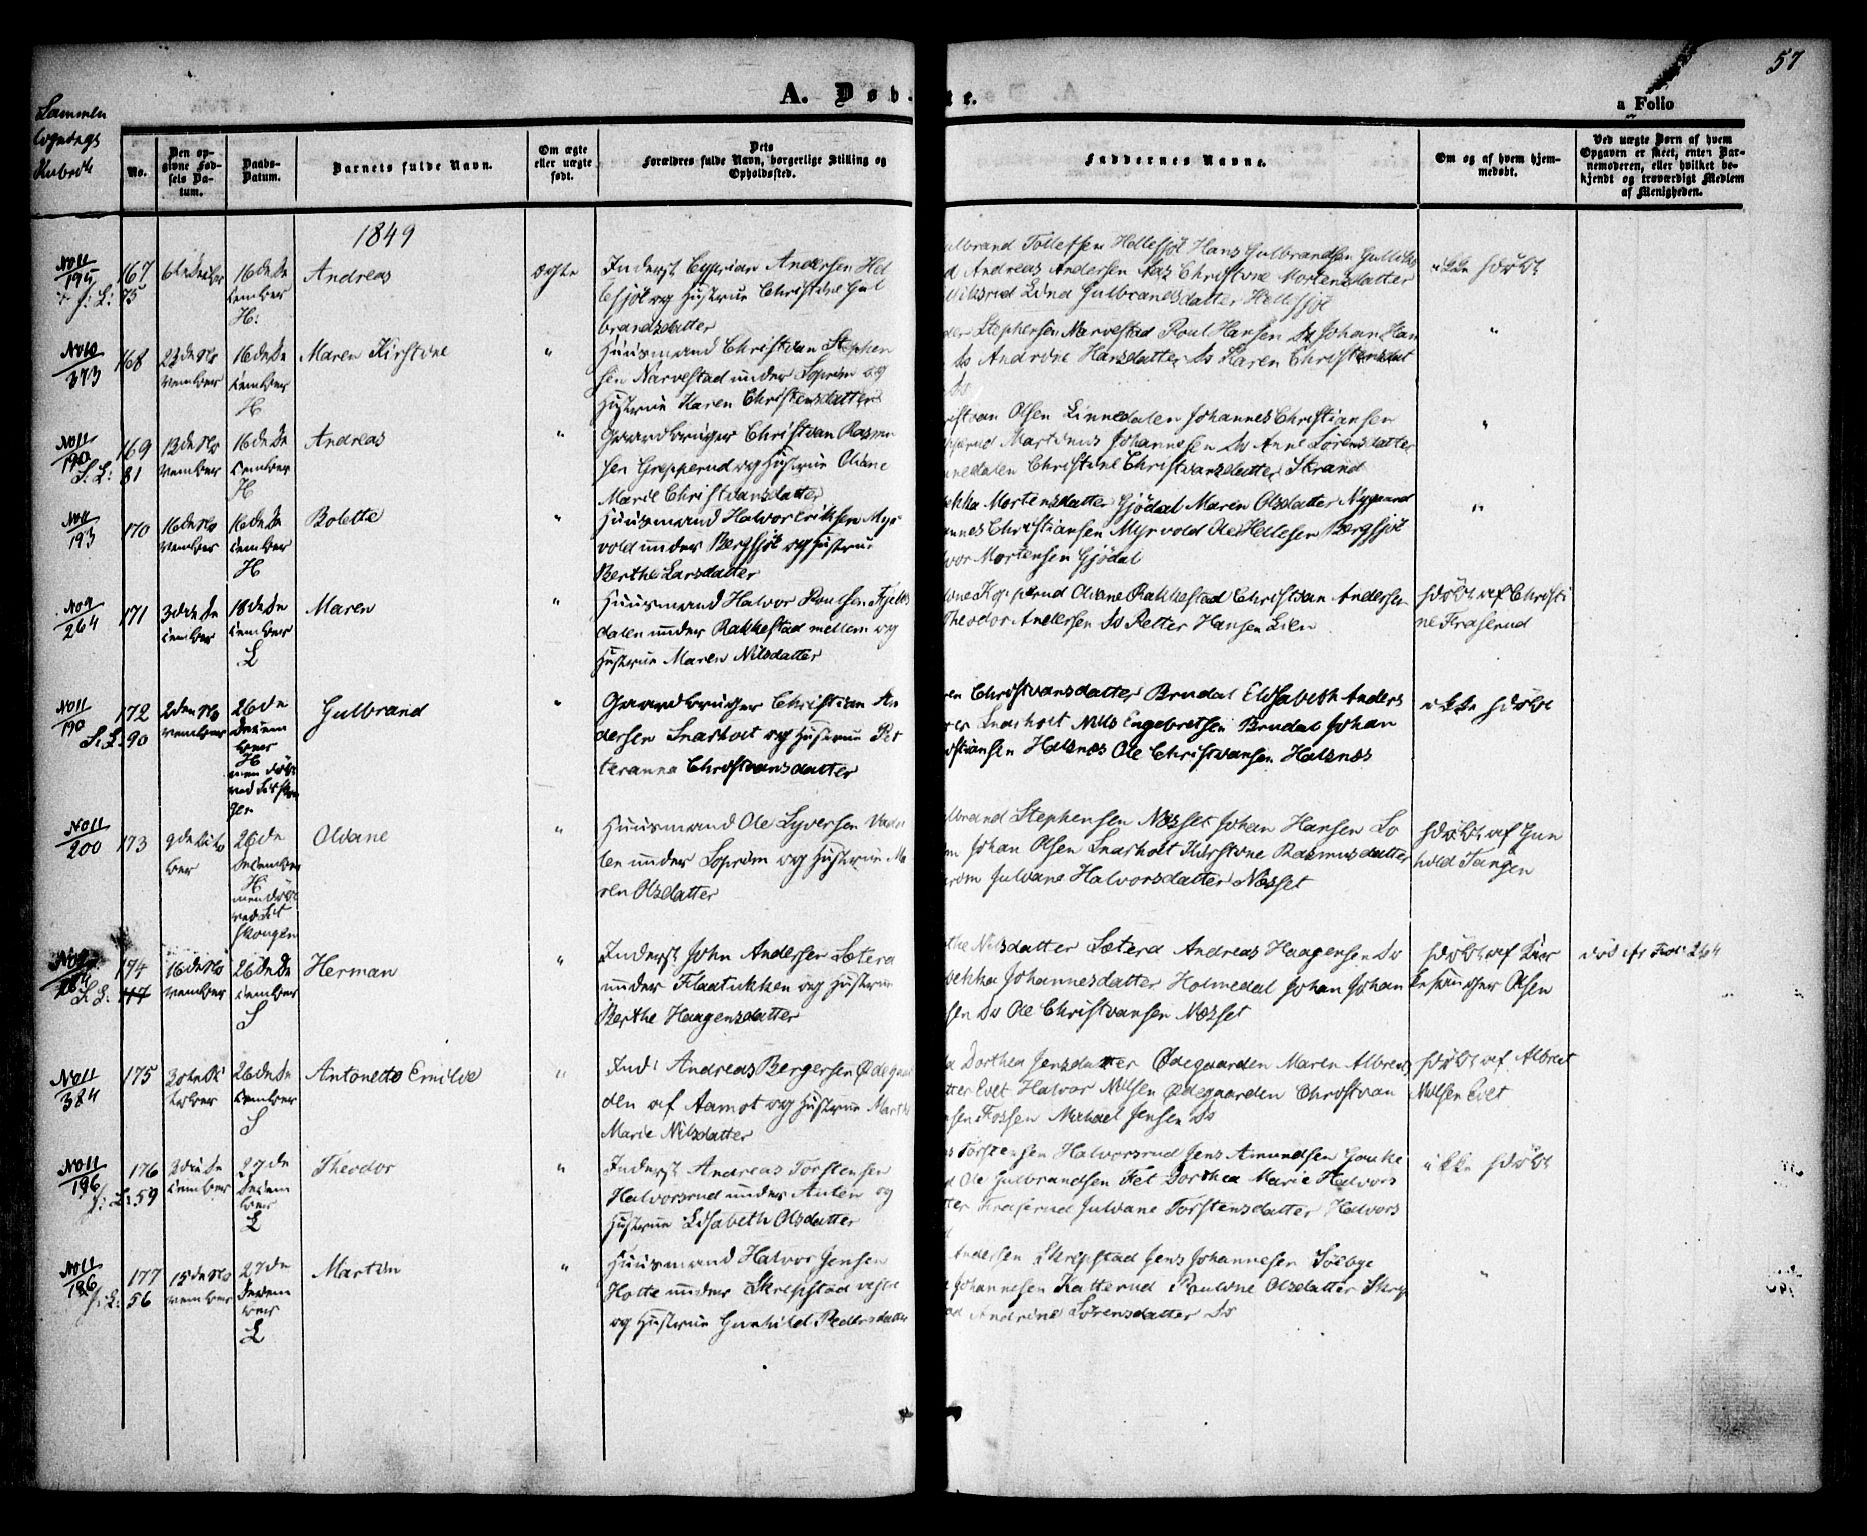 57
A. Døb.
te.
a Folio
Sammen
No.
Den op-
givne Fød-
sels Da-
tum.
Daabs-
Datum.
Barnets fulde Navn.
Om ægte
eller uægte
født.
Dets
Forældres fulde Navn, borgerlige Stilling og
Opholdssted.
Faddernes Navne.
Om og af hvem hjem-
medøbt.
Ved uægte Børn af hvem
Opgaven er skeet, enten Bar-
nemoderen, eller hvilket be-
kjendt og troværdigt Medlem
af Menigheden.
1849
No 11
195
f: L: 75
167
16 de De
cember
H:
Andreas
ægte
Inderst Cyprian Andersen Hel
lesjøl og Hustrue Christine Gul
brandsdatter
Gulbrand Tollefsen Hellesjøl Hans Gulbrandsen
Andreas Andersen Aas Christine Mortensdatter
Lina Gulbrandsdatter Hellesjøl
ikke hdøbt
No 10
373
168
23 de No
vember
16 de De
cember
H
Maren Kirstine
"
Huusmand Christian Stephen
sen Narvestad under Soprim og
Hustrue Karen Christensdatter
der Stephensen Narvestad Poul Hansen Ds Johan Han
Ds Andrine Hansdatter Ds Karen Christensdat
Ds
"
No 11
190
S: L: 81
169
13 de No
vember
16 de De
cember
H
Andreas
"
Gaardbruger Christian Rasmu
sen Grepperud og Hustrue Oliane
Marie Christiansdatter
istian Olsen Linnedalen Johannes Christiansen
perud Martinus Johannesen Ds Anne Sørensdatter
nnedalen Christine Christiansdatter Strand
"
No 11
193
170
16 de No
vember
16 de De
cember
H
Bolette
"
Huusmand Halvor Eriksen Myr
vold under Bergsjøl og Hustrue
Berthe Larsdatter
ekka Mortensdatter Gjødal Maren Olsdatter Nygaard
annes Christiansen Myrvold Ole Hellesen Bergsjøl
vor Mortensen Gjødal
"
No 9
264
171
3 die De
cember
18 de De
cember
L
Maren
"
Huusmand Halvor Poulsen Fjells
dalen under Rakkestad mellem og
Hustrue Maren Nilsdatter
ine Kopperud Oliane Rakkestad Christian Andersen
Theodor Andersen Ds Petter Hansen Lien
hdøbt af Christi
ne Fraserud
No 11
190
S: L: 90
172
2 den No
vember
26 de
Decem
ber
H
men døbt
Gulbrand
"
Gaardbruger Christian An
dersen Snarholt og Hustrue Pet
teranna Christiansdatter
ren Christiansdatter Brudal Elisabeth Anders
ter Snarholt Nils Engebretsen Brudal Johan
istiansen Halsnæs Ole Christiansen Halsnæs
ikke hdøbt
No 11
200
173
9 de Octo
ber
26 de
December
H
men døbt
ved Set
skougen
Oliane
"
Huusmand Ole Syversen Vada
len under Soprim og Hustrue Ma
ren Olsdatter
lbrand Stephensen Næsset Johan Hansen So
m Johan Olsen Snarholt Kirstine Rasmusdatter
prøm Juliane Halvorsdatter Næsset
hdøbt af Gun
hild Tangen
S: L: 117
174
16 de No
vember
26 de De
cember
S
Herman
"
Inderst John Andersen Sæterd
under Flaatukken og Hustrue
Berthe Haagensdatter
the Nilsdatter Sæterd Andreas Haagensen Ds
ekka Johannesdatter Holmedal Johan Johan
sen Ds Ole Christiansen Næsset
hdøbt af Kir
kesanger Olsen
død cfr Fol: 264
No 11
384
175
30 te Oc
tober
26 de De
cember
S
Antonette Emilie
"
Ind: Andreas Bergersen Ødegaar
den af Aamot og Hustrue Marthe
Marie Nilsdatter
Dorthea Jensdatter Ødegaarden Maren Albrets
tter Evet Halvor Nilsen Ødegaarden Christian
nsen Fossen Michael Jensen Ds
hdøbt af Albret
Nilsen Evet
No 11
196
f: L: 59
176
3 die De
cember
27 de
Decem
ber
L
Theodor
"
Inderst Andreas Torstensen
Halvorsrud under Anten og
Hustrue Elisabeth Olsdatter
Torstensen Halvorsrud Jens Amundsen Gauke
d Ole Gulbrandsen Fet Dorthea Marie Halvors
tter Fraserud Juliane Torstensdatter Halvors
ikke hdøbt
No 11
196
f: L: 56
177
15 de No
vember
27 de
Decem
ber
L
Martin
"
Huusmand Halvor Jensen
Holte under Skrepstad
og Hustrue Gunhild Pedersdatter
Andersen Skrepstad Jens Johannesen Solbye
Johannesen Katterud Pauline Olsdatter Skrep
ad Andrine Sørensdatter Ds
"